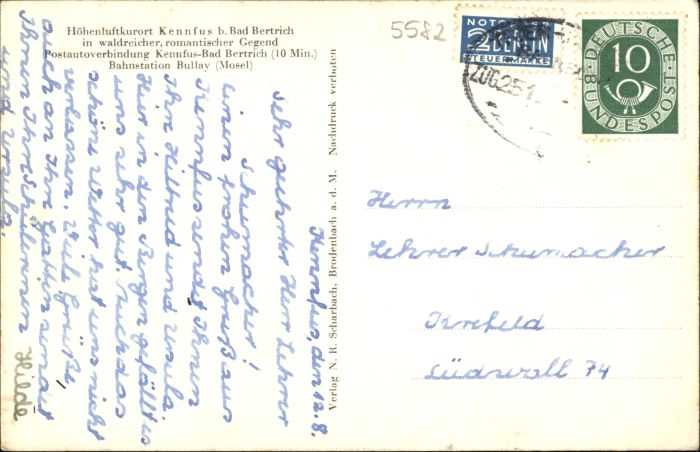 Höhenluftkurort Kennfus b. Bad Bertrich
in waldreicher, romantischer Gegend
Postautoverbindung Kennfus-Bad Bertrich (10 Min.)
Bahnstation Bullay (Mosel)
5582
NOTOPFER
2 BERLIN
STEUERMARKE
DEUTSCHE
BUNDESPOST
10
ZUG251
Kennfus, den 12.8.
Sehr geehrter Herr Lehrer
Schumacher!
Einen frohen Gruß aus
Kennfus sendet Ihnen
Ihre Hiltrud und Ursula.
Hier in den Bergen gefällt es
uns sehr gut. Auch das
schöne Wetter hat uns nicht
verlassen. Viele Grüße,
auch an Ihre Gattin sendet
Ihnen Ihre Schülerinnen
und Ursula.
Hilde
Verlag N. R. Scharbach, Brodenbach a. d. M. Nachdruck verboten
Herrn
Lehrer Schumacher
Krefeld
Südwall 74